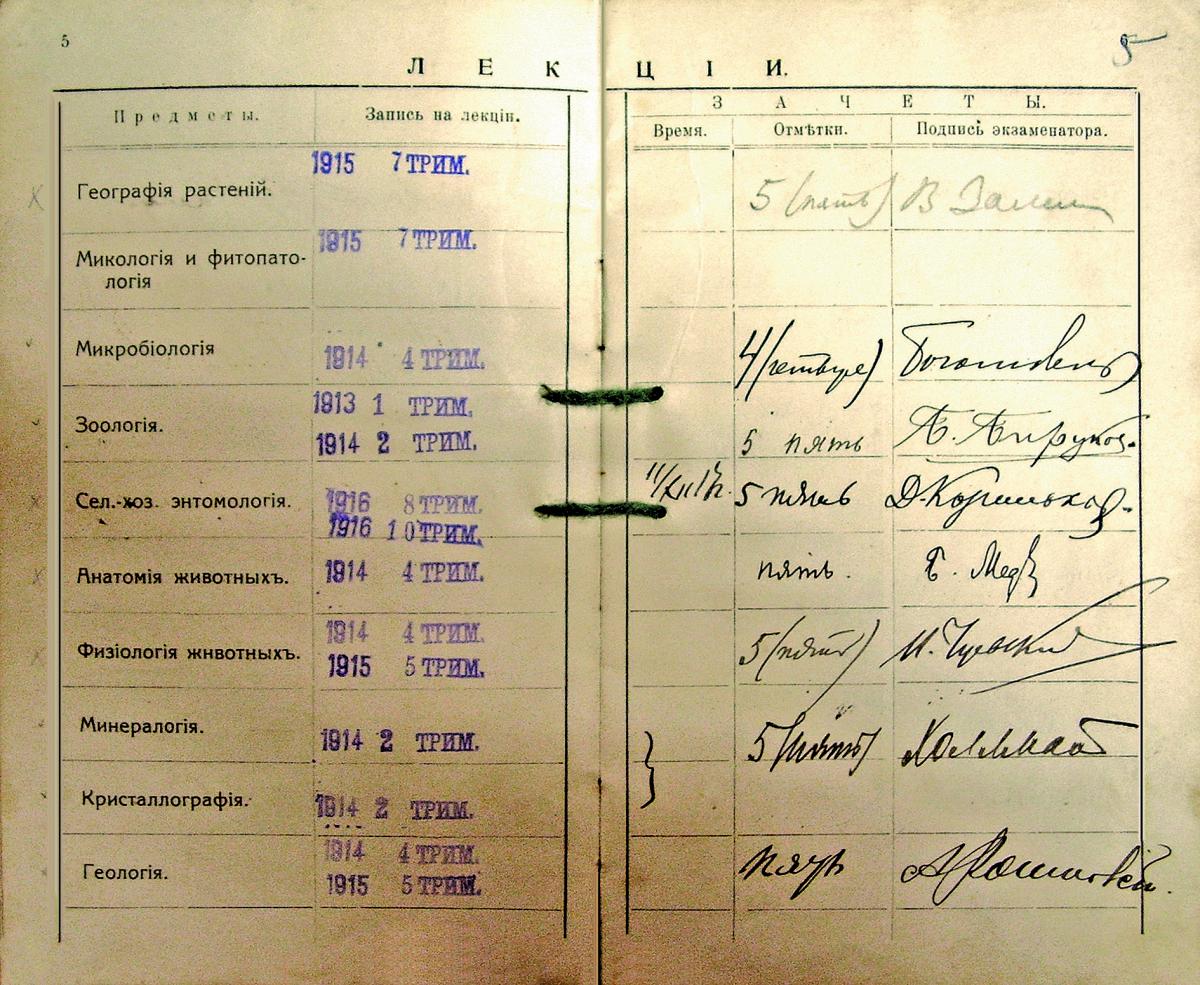 5
5
ЛЕКЦІИ.
Предметы.
Запись на лекціи.
ЗАЧЕТЫ.
Время.
Отмѣтки.
Подпись экзаменатора.
1915 7 ТРИМ.
Географія растеній.
5 (пять)
В
1915 7 ТРИМ.
Микологія и фитопато-
логія
Микробіологія
1914 4 ТРИМ.
4 (четыре)
1913 1 ТРИМ.
Зоологія.
1914 2 ТРИМ.
5 пять
Сел.-хоз. энтомологія.
1916 8 ТРИМ.
5 пять
1916 10 ТРИМ.
Анатомія животныхъ.
1914 4 ТРИМ.
пять.
1914 4 ТРИМ.
Физіологія животныхъ.
1915 5 ТРИМ.
5 (пять)
Минералогія.
1914 2 ТРИМ.
5 (пять)
Кристаллографія.
1914 2 ТРИМ.
1914 4 ТРИМ.
Геологія.
1915 5 ТРИМ.
пять